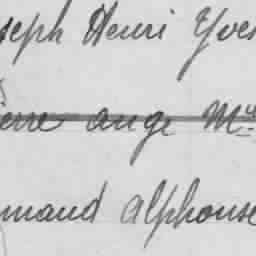 seph Henri Yves
erre ange M
mand Alphonse